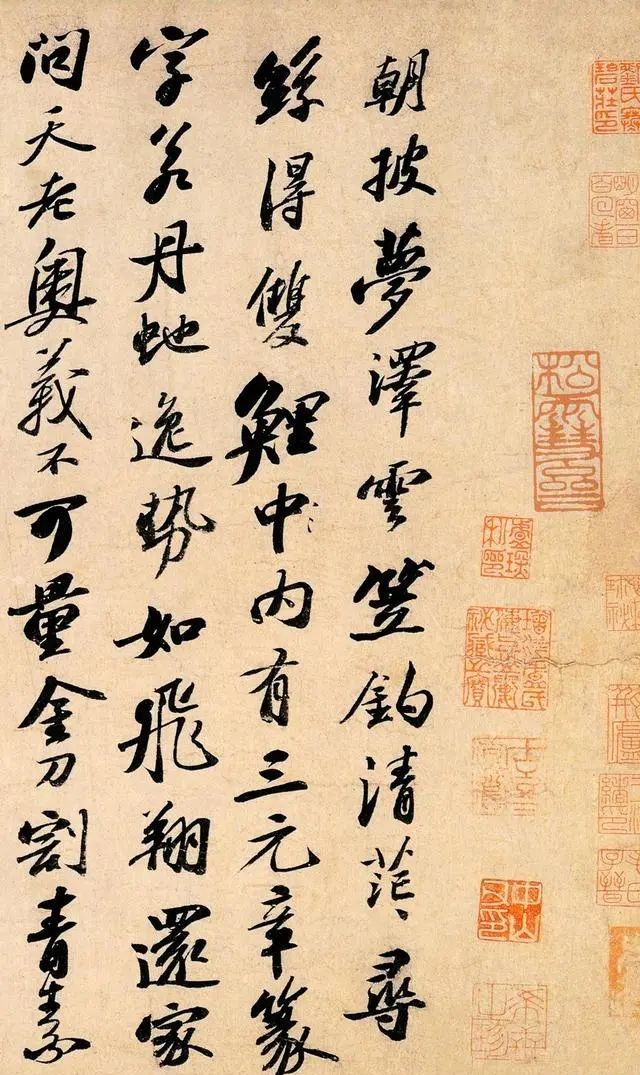 朝披夢澤雲笠釣清茫〻尋
絲得雙鯉中內有三元章篆
字若丹虵逸勢如飛翔還家
問天老奧義不可量金刀割青素